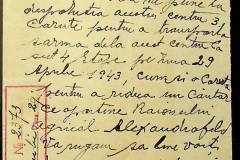 va pune la
dispoziția acestui centru 3
Carute pentru a transporta
sarma dela acest centru la
4 Etape pe ziua 29
Aprilie 1943, cum si o Caruta
pentru a ridica un cantar
ce apartine Raionului
Agricol Alexandrofeld
Va rugam sa
No 2073